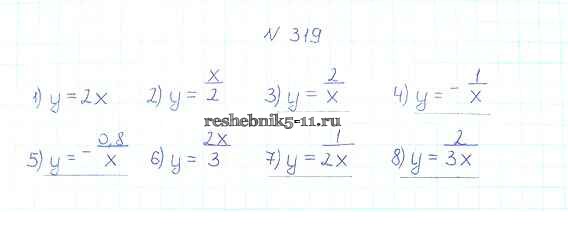 № 319
1) y = 2x 2) y = x/2 3) y = 2/x 4) y = - 1/x
reshebnik5-11.ru
5) y = - 0,8/x 6) y = 2x/3 7) y = 1/2x 8) y = 2/3x